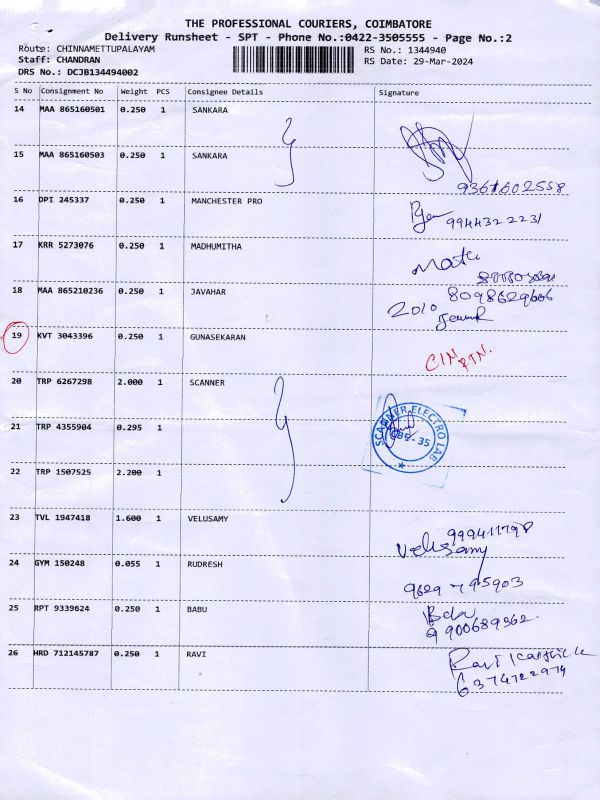 THE PROFESSIONAL COURIERS, COIMBATORE
Delivery Runsheet - SPT - Phone No.:0422-3505555 - Page No.:2
Route: CHINNAMETTUPALAYAM RS No.: 1344940
Staff: CHANDRAN RS Date: 29-Mar-2024
DRS No.: DCJB134494002
S No Consignment No Weight PCS Consignee Details Signature
14 MAA 865160501 0.250 1 SANKARA
15 MAA 865160503 0.250 1 SANKARA
9361602558
16 DPI 245337 0.250 1 MANCHESTER PRO
9944322231
17 KRR 5273076 0.250 1 MADHUMITHA
18 MAA 865210236 0.250 1 JAVAHAR 8098629606
2010
19 KVT 3043396 0.250 1 GUNASEKARAN
20 TRP 6267298 2.000 1 SCANNER
21 TRP 4355904 0.295 1
SCANNER ELECTRO LAB
CBE - 35
22 TRP 1507525 2.200 1
23 TVL 1947418 1.600 1 VELUSAMY
Velusamy
24 GYM 150248 0.055 1 RUDRESH
9629795903
25 RPT 9339624 0.250 1 BABU
9900689362.
26 HRD 712145787 0.250 1 RAVI
Ravi
6374722974